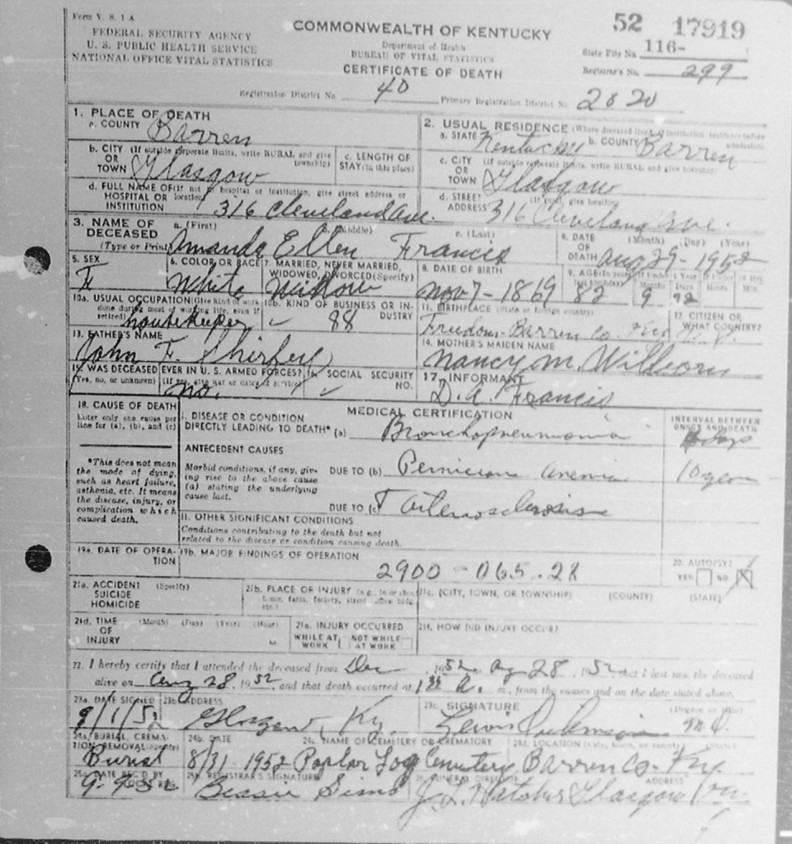 Form V. S. 1 A
FEDERAL SECURITY AGENCY
U. S. PUBLIC HEALTH SERVICE
NATIONAL OFFICE VITAL STATISTICS
COMMONWEALTH OF KENTUCKY
Department of Health
BUREAU OF VITAL STATISTICS
CERTIFICATE OF DEATH
52 17919
State File No. 116-
Registrar's No. 299
Registration District No. 40 Primary Registration District No. 2820
1. PLACE OF DEATH
a. COUNTY Barren
2. USUAL RESIDENCE (Where deceased lived. If institution: residence before
a. STATE Kentucky b. COUNTY Barren
b. CITY (If outside corporate limits, write RURAL and give township)
OR TOWN Glasgow
c. LENGTH OF STAY (in this place)
c. CITY (If outside corporate limits, write RURAL and give township)
OR TOWN Glasgow
d. FULL NAME OF (If not in hospital or institution, give street address or location)
HOSPITAL OR INSTITUTION 316 Cleveland Ave.
d. STREET (If rural, give location)
ADDRESS 316 Cleveland Ave.
3. NAME OF DECEASED (Type or Print)
a. (First) b. (Middle) c. (Last)
Amanda Ellen Francis
4. DATE OF DEATH (Month) (Day) (Year)
Aug 29 - 1952
5. SEX
F
6. COLOR OR RACE
White
7. MARRIED, NEVER MARRIED, WIDOWED, DIVORCED (Specify)
Widow
8. DATE OF BIRTH
Nov 7 - 1869
9. AGE
82 9
Months Days Hours Min.
10a. USUAL OCCUPATION (Give kind of work done during most of working life, even if retired)
Housekeeper
10b. KIND OF BUSINESS OR INDUSTRY
88
11. BIRTHPLACE (State or foreign country)
Freedom - Barren Co. Ky
12. CITIZEN OF WHAT COUNTRY?
13. FATHER'S NAME
John F.
14. MOTHER'S MAIDEN NAME
Nancy M.
15. WAS DECEASED EVER IN U. S. ARMED FORCES?
(Yes, no, or unknown) (If yes, give war or dates of service)
no.
16. SOCIAL SECURITY NO.
17. INFORMANT
D. A. Francis
18. CAUSE OF DEATH
Enter only one cause per line for (a), (b), and (c)
*This does not mean the mode of dying, such as heart failure, asthenia, etc. It means the disease, injury, or complication which caused death.
MEDICAL CERTIFICATION
INTERVAL BETWEEN ONSET AND DEATH
I. DISEASE OR CONDITION
DIRECTLY LEADING TO DEATH* (a) Bronchopneumonia days
ANTECEDENT CAUSES
Morbid conditions, if any, giving rise to the above cause (a) stating the underlying cause last.
DUE TO (b) Pernicious anemia 10 years
DUE TO (c) Arteriosclerosis
II. OTHER SIGNIFICANT CONDITIONS
Conditions contributing to the death but not related to the disease or condition causing death.
19a. DATE OF OPERATION
19b. MAJOR FINDINGS OF OPERATION
2900 - 065.28
20. AUTOPSY?
YES NO X
21a. ACCIDENT SUICIDE HOMICIDE (Specify)
21b. PLACE OF INJURY
21c. (CITY, TOWN, OR TOWNSHIP) (COUNTY) (STATE)
21d. TIME OF INJURY (Month) (Day) (Year) (Hour)
21e. INJURY OCCURRED
WHILE AT WORK NOT WHILE AT WORK
21f. HOW DID INJURY OCCUR?
22. I hereby certify that I attended the deceased from Dec 1952 Aug 28 1952 that I last saw the deceased
alive on Aug 28, 1952, and that death occurred at A. m., from the causes and on the date stated above.
23a. DATE SIGNED
9/1/52
23b. ADDRESS
Glasgow, Ky.
23c. SIGNATURE (Degree or title)
Lewis Dickinson M.D.
24a. BURIAL, CREMATION, REMOVAL
Burial
24b. DATE
8/31 - 1952
24c. NAME OF CEMETERY OR CREMATORY
Poplar Log Cemetery
24d. LOCATION
Barren Co. Ky.
25a. DATE REC'D BY
9-9-52
25b. REGISTRAR'S SIGNATURE
Bessie Sims
FUNERAL DIRECTOR ADDRESS
J. L. Hatcher Glasgow